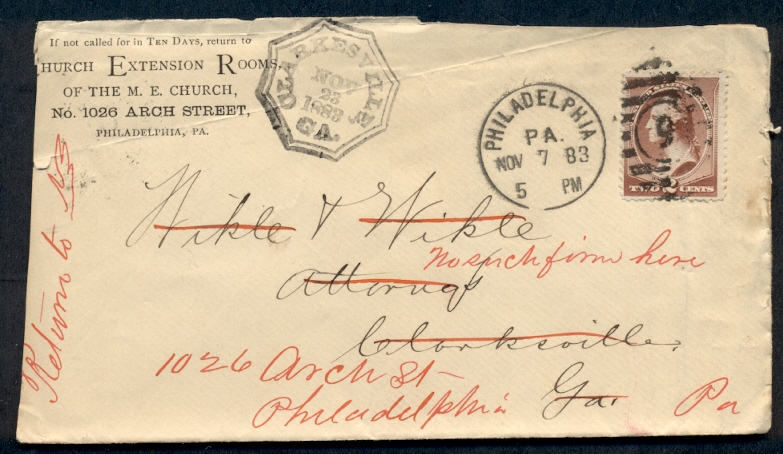 If not called for in TEN DAYS, return to
HURCH EXTENSION ROOMS,
OF THE M. E. CHURCH,
No. 1026 ARCH STREET,
PHILADELPHIA, PA.
CLARKESVILLE
NOV
23
1883
GA.
PHILADELPHIA
PA.
NOV 7 83
5 PM
9
TWO 2 CENTS
Wikle & Wikle
No such firm here
Attorneys
Clarksville,
Ga.
Return to
1026 Arch St
Philadelphia Pa